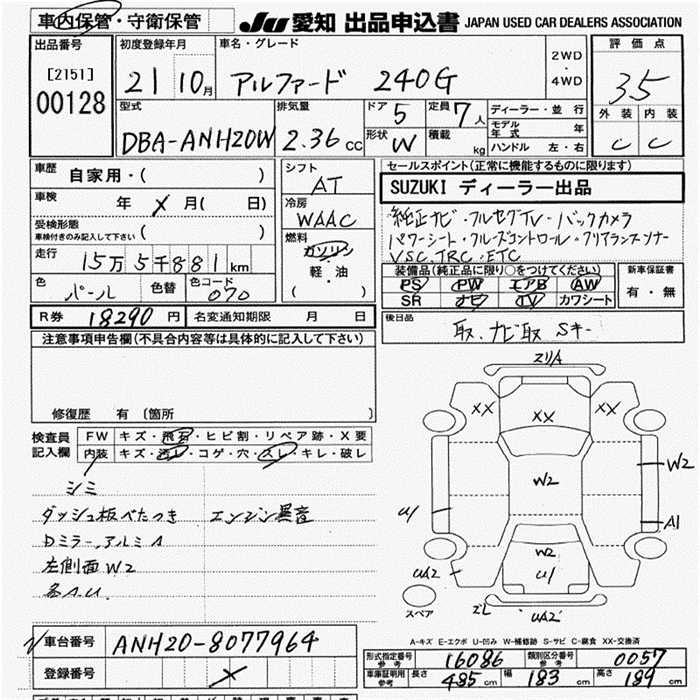 車内保管・守衛保管
JU 愛知 出品申込書 JAPAN USED CAR DEALERS ASSOCIATION
出品番号
[2151]
00128
初度登録年月
21 10月
車名・グレード
アルファード 240G
2WD
・
4WD
評価点
3.5
外装 内装
C C
型式
DBA-ANH20W
排気量
2.36 CC
ドア 5
形状 W
定員 7人
積載 kg
ディーラー・並行
モデル年式 年
ハンドル 左・右
車歴
自家用・( )
車検
年 X 月( 日)
受検形態
車検付きのみ記入して下さい ( )
走行
15万5千881km
色 パール 色替 色コード 070
シフト
AT
冷房
WAAC
燃料
ガソリン
軽・油
( )
セールスポイント(正常に機能するものに限ります)
SUZUKI ディーラー出品
純正ナビ・フルセグTV・バックカメラ
パワーシート・クルーズコントロール・クリアランスソナー
VSC.TRC・ETC
装備品(純正品に限り○をつけてください)
PS PW エアB AW
SR ナビ TV カワシート
新車保証書
有・無
R券 18290円 名変通知期限 月 日
後日品
取、ナビ取 Sキー
注意事項申告欄(不具合内容等は具体的に記入して下さい)
修復歴 有 〔箇所 〕
検査員
記入欄
FW キズ・飛石・ヒビ割・リペア跡・X要
内装 キズ・汚レ・コゲ・穴・スレ・キレ・破レ
シミ
ダッシュ板べたつき エンジン異音
Dミラー、アルミA
左側面W2
各A.U.
スリA
XX XX XX
W2
W2
U1
A1
W2
U1
UA2
スペア
スレ
UA2
A-キズ E-エクボ U-凹み W-補修跡 S-サビ C-腐食 XX-交換済
車台番号 ANH20-8077964
登録番号 X
形式指定番号 参考 16086 類別区分番号 参考 0057
車庫証明用 参考 長さ 485cm 幅 183cm 高さ 189cm